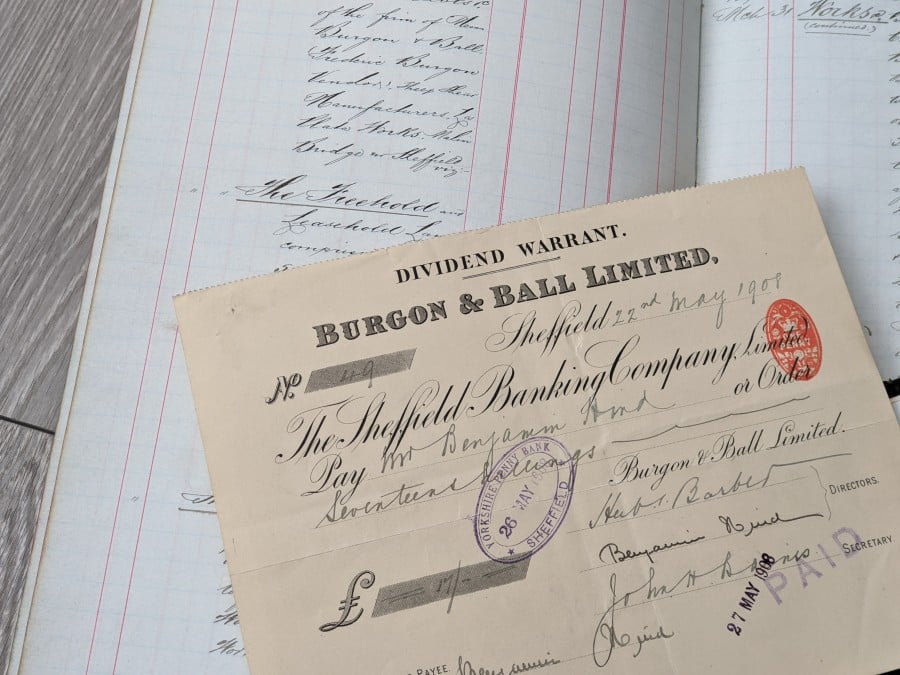 of the firm of
Burgon & Ball
Frederic Burgon
Vendors: Sheep Shear
Manufacturers, La
Plata Works, Malin
Bridge nr Sheffield
viz:-
" " The Freehold and
Leasehold La
compri
Mch 31 Worksop
(continued)
DIVIDEND WARRANT.
BURGON & BALL LIMITED,
Sheffield 22nd May 1908
No 49
The Sheffield Banking Company, Limited
Pay Mr Benjamin Hind or Order
Seventeen Shillings
Burgon & Ball Limited.
DIRECTORS.
Benjamin Hind
£ 17/-
John H.
SECRETARY
PAYEE Benjamin Hind
YORKSHIRE PENNY BANK
26 MAY
SHEFFIELD
PENNY
27 MAY 1908
PAID